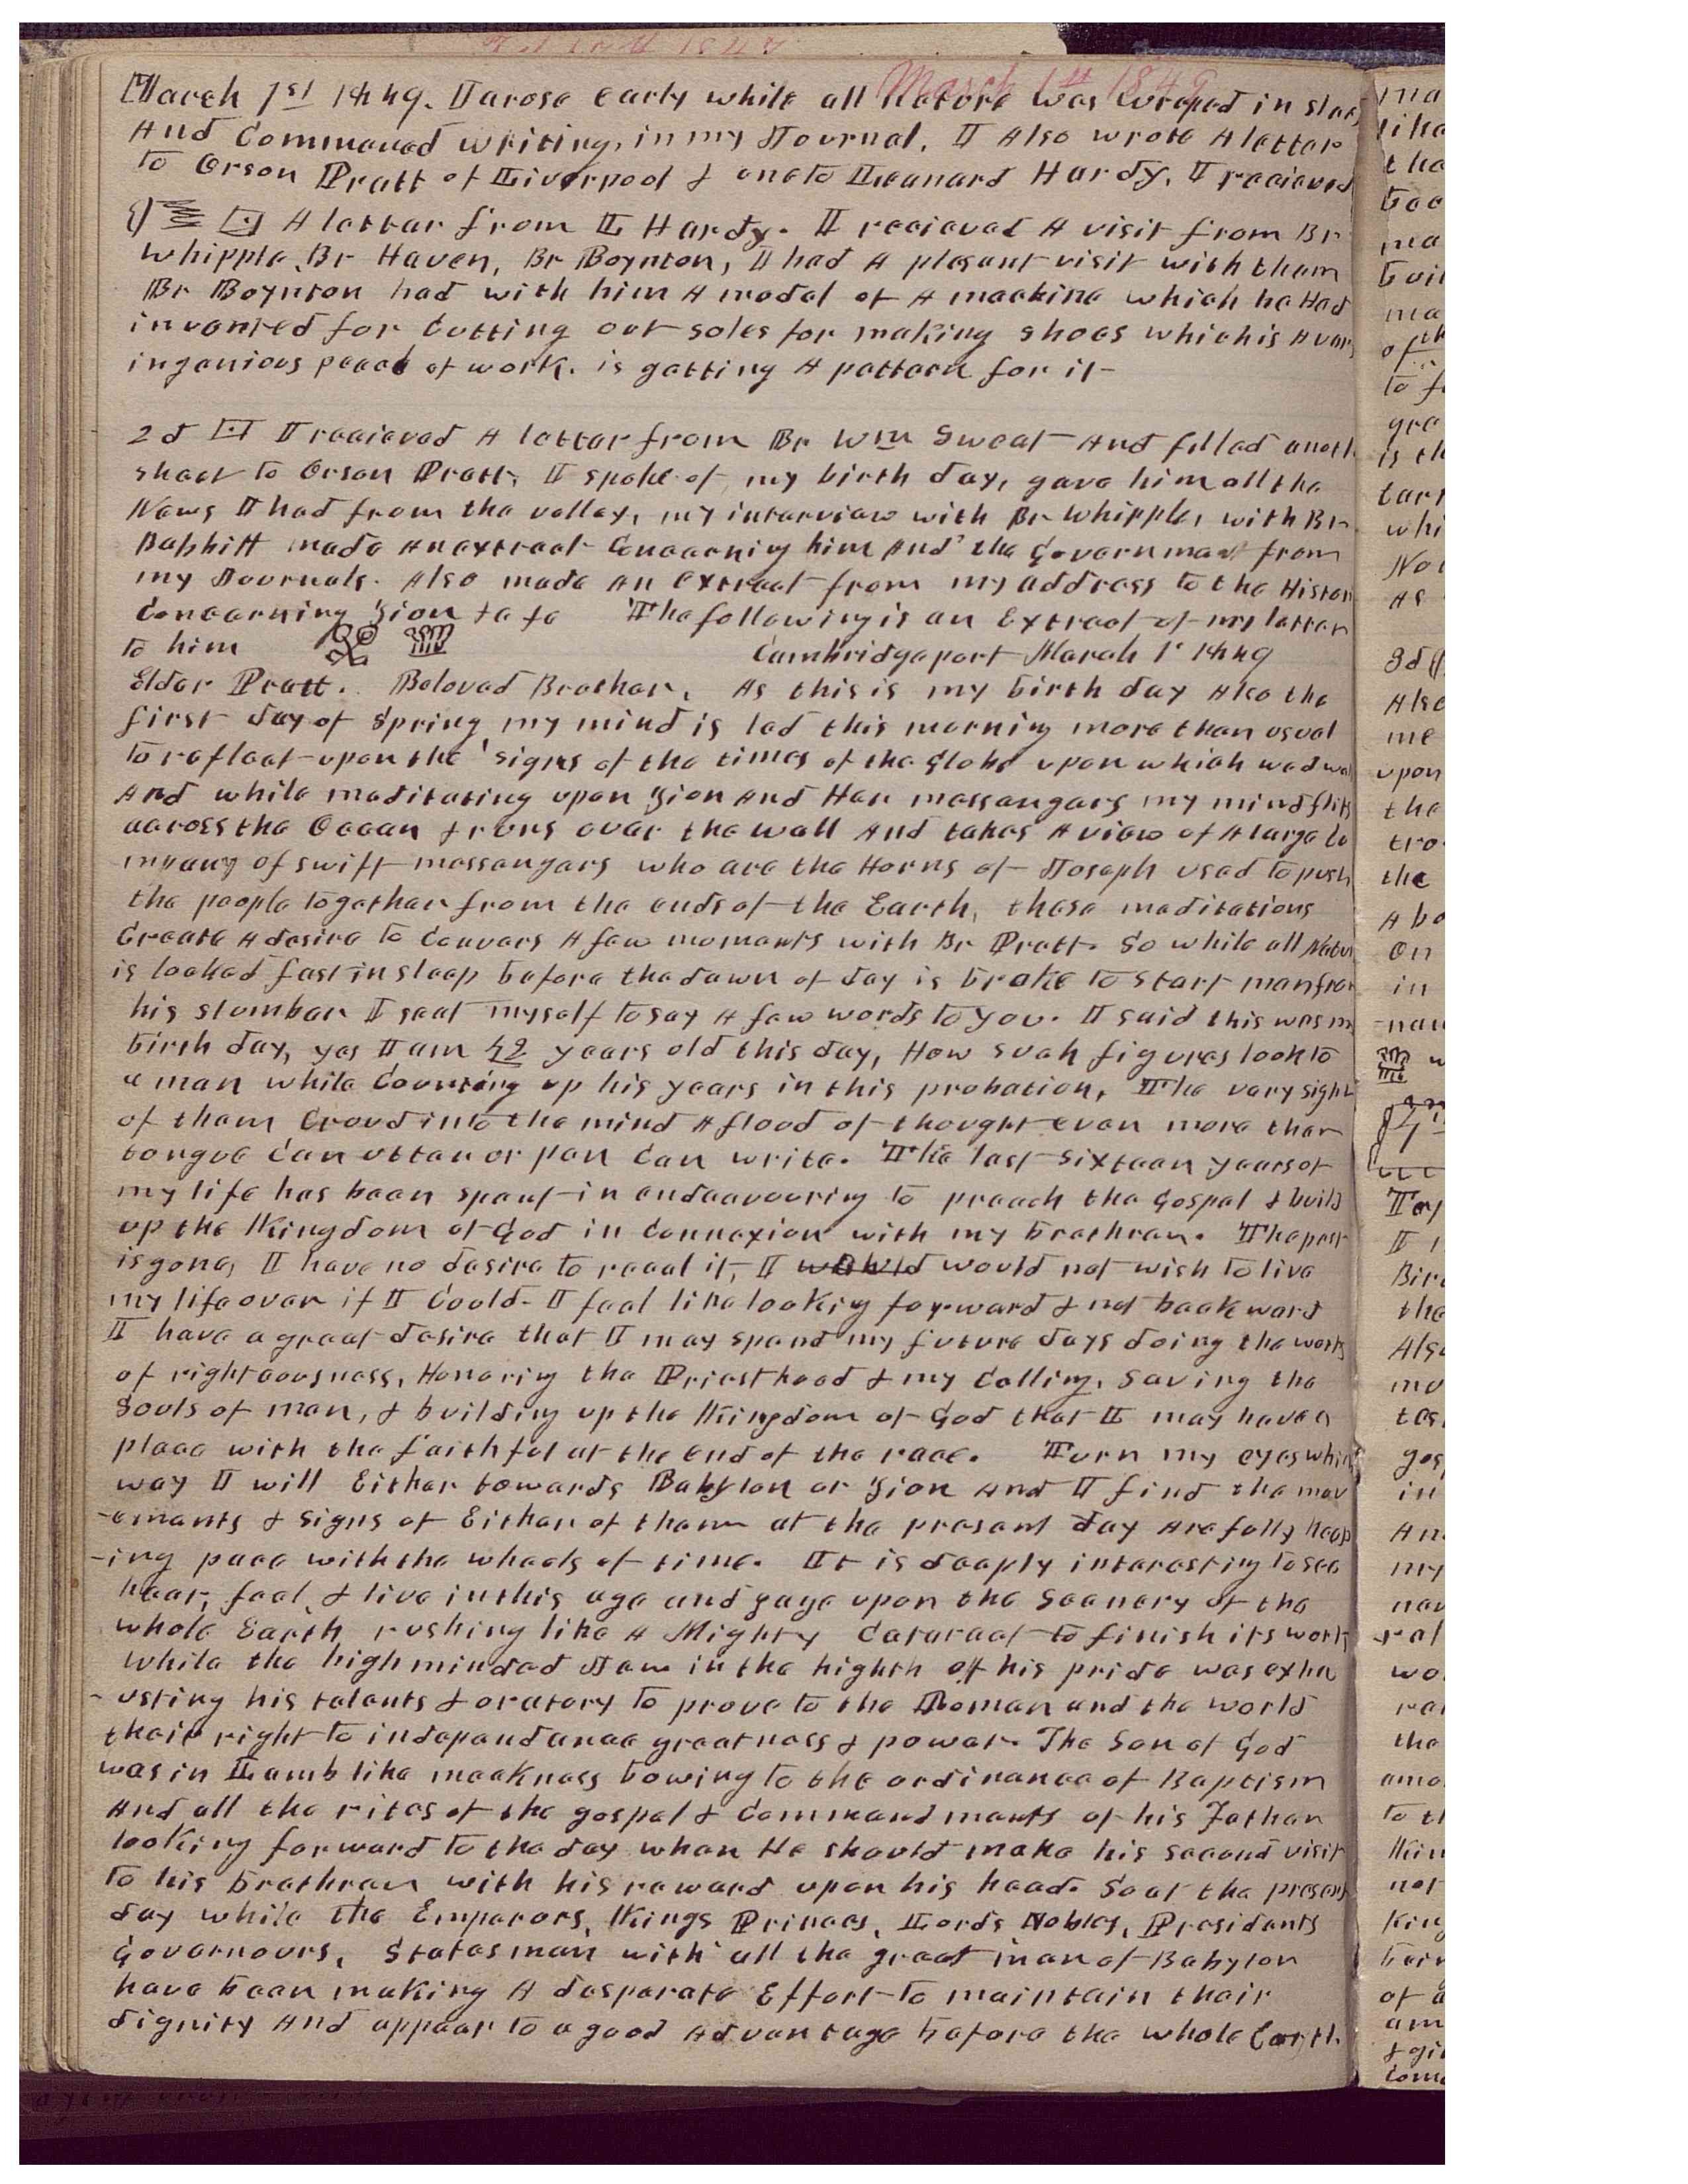 March 1st 1849
March 1st 1849. I arose early while all Nature was wraped in sleep
And Commenced writing, in my Journal. I Also wrote A letter
to Orson Pratt of Liverpool & one to Leonard Hardy. I recieved
A letter from L Hardy. I recieved A visit from Br
Whipple, Br Haven, Br Boynton, I had A plesant visit with them
Br Boynton had with him A model of A macking which he Had
invented for Cutting out soles for making shoes which is A very
ingenious peece of work. is getting A pattern for it
2d I recieved A letter from Br Wm Sweat And filled anoth
sheet to Orson Pratt, I spoke of my birth day, gave him all the
News I had from the valley, my interview with Br Whipple, with Br
Babbitt made an extract Concerning him And the Government from
my Journals. Also made an Extract from my address to the Histor
Concerning Zion &c &c The following is an Extract of my letter
to him Cambridgeport March 1st 1849
Elder Pratt. Beloved Brother, As this is my birth day Also the
first day of Spring my mind is led this morning more than usual
to reflect upon the signs of the times of the Globe upon which we dwel
And while meditating upon Zion And Her messengers my mind flits
across the Ocean & runs over the wall And takes A view of A large Co
mpany of swift messengers who are the Horns of Joseph used to push
the people together from the ends of the Earth, these meditations
Create A desire to Convers A few moments with Br Pratt. So while all Natur
is locked fast in sleep before the dawn of day is broke to start man from
his slumber I seat myself to say A few words to you. I said this was m
birth day, yes I am 42 years old this day, How such figures look to
a man while Counting up his years in this probation, The very sight
of them Croud into the mind A flood of thought even more than
tongue Can utter or pen Can write. The last sixteen years of
my life has been spent in endeavouring to preach the Gospel & build
up the Kingdom of God in Connexion with my brethren. The past
is gone, I have no desire to recal it, I would would not wish to live
my life over if I Could. I feel like looking forward & not backward
I have a great desire that I may spend my future days doing the works
of righteousness, Honoring the Priesthood & my Calling, Saving the
Souls of men, & building up the Kingdom of God that I may have a
place with the faithful at the End of the race. Turn my eyes whic
way I will Either towards Babylon or Zion And I find the mov
-ements & Signs of Either of them at the present day Are fully keep
-ing pace with the wheels of time. It is deeply interesting to see
hear, feel, & live in this age and gaze upon the Scenery of the
whole Earth rushing like A Mighty Cataract to finish its work
While the high minded Jew in the highth of his pride was exha
-usting his talents & oratory to prove to the Roman and the world
their right to independance greatness & power. The Son of God
was in Lamb like meekness bowing to the ordinance of Baptism
And all the rites of the gospel & Commandments of his Father
looking forward to the day when He should make his second visit
to his brethren with his reward upon his head. So at the present
day while the Emperors, Kings Princes, Lords Nobles, Presidents
Governours, Statesman with all the great men of Babylon
have been making A desperate Effort to maintain their
dignity And appear to a good Advantage before the whole Earth.